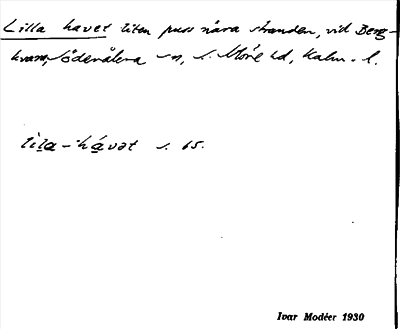 Lilla havet liten puss nära stranden, vid Berg-
kvara, Söderåkra sn, S. Möre hd, Kalm. l.
lìla-hávət s. 65.
Ivar Modéer 1930